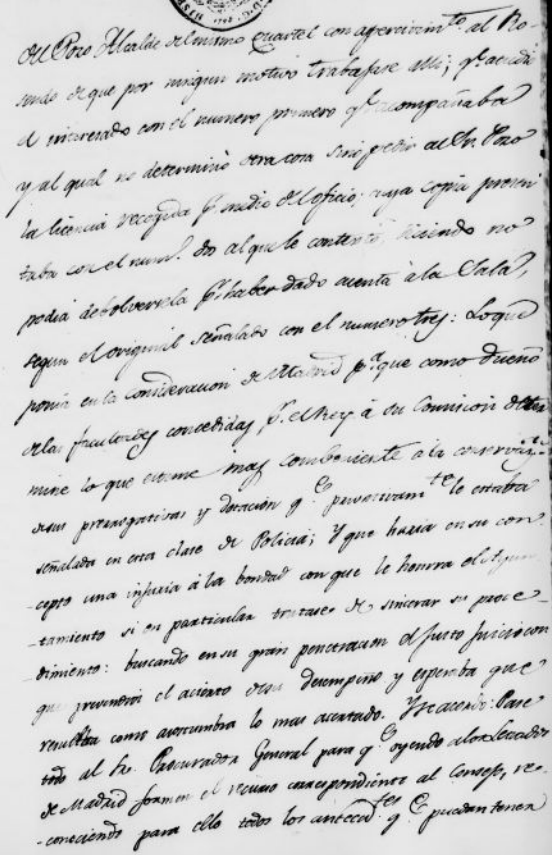 del Pozo Alcalde del mismo Quartel con apercivim.to al Ro-
sendo de que por ningun motivo trabajase alli; q.e acudio
el interesado con el numero primero q.e acompañaba
y al qual no determinó otra cosa sino pedir al Sr. Pozo
la licencia recogida p.r medio del oficio; cuya copia presen
taba con el num.º dos al que le contestó, diciendo no
podia debolversela p.r haber dado cuenta à la Sala,
segun el original señalado con el numero tres: Lo que
ponia en la consideracion de Madrid p.a que como dueño
de las facultades concedidas p.r el Rey à su Comision deter
mine lo que estime mas combeniente à la conservaz.on
de sus prerrogativas y dotacion q.e privativam.te le estaba
señalada en esta clase de Policia; Y que haria en su con
cepto una injuria à la bondad con que le honrra el Ayun
-tamiento si en particular tratase de sincerar su proce-
dimiento: buscando en su gran penetracion el justo juicio con
que premdió el acierto de su desempeño y esperaba que
resultba como acostumbra lo mas acertado. Y se acordó: Pase
todo al Sr. Procurador General para q.e oyendo a los Letrados
de Madrid formen el recurso correspondiente al Consejo, re-
-conociendo para ello todos los anteced.tes q.e puedan tener